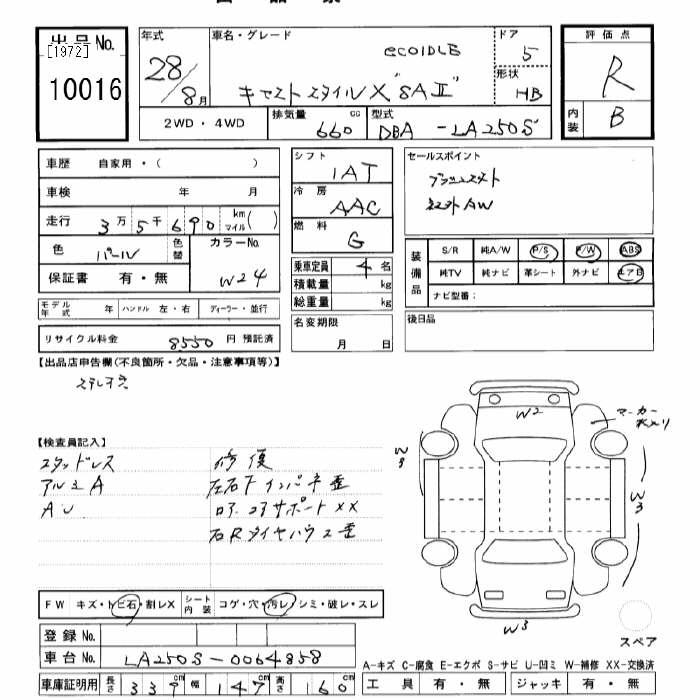 出品No.
[1972]
10016
年式
28/8月
車名・グレード
ecoIDLE
キャスト スタイル X "SA II"
ドア
5
形状
HB
評価点
R
内装
B
2WD・4WD
排気量
660 cc
型式
DBA - LA250S
車歴 自家用・( )
車検 年 月
走行 3万5千690 km マイル( )
色 パール 色替 カラーNo. W24
保証書 有・無
シフト
IAT
冷房
AAC
燃料
G
乗車定員 4名
積載量 kg
総重量 kg
名変期限
月 日
セールスポイント
プッシュスタート
社外AW
装備品
S/R 純A/W P/S P/W ABS
純TV 純ナビ 革シート 外ナビ エアB
ナビ型番:
後日品
モデル年式 年 ハンドル 左・右 ディーラー・並行
リサイクル料金 8550 円 預託済
【出品店申告欄(不良箇所・欠品・注意事項等)】
ステレオ穴
【検査員記入】
スタッドレス
アルミA
AU
修復
左右Fインパネ歪
ロア.コアサポートXX
右Rタイヤハウス歪
W2
マーカー
W3
W3
W3
スペア
FW キズ・トビ石・割レX シート内装 コゲ・穴・汚レ・シミ・破レ・スレ
登録No.
車台No. LA250S-0064858
車庫証明用 長さ 339 幅 147 高さ 160
A-キズ C-腐食 E-エクボ S-サビ U-凹ミ W-補修 XX-交換済
工具 有・無 ジャッキ 有・無